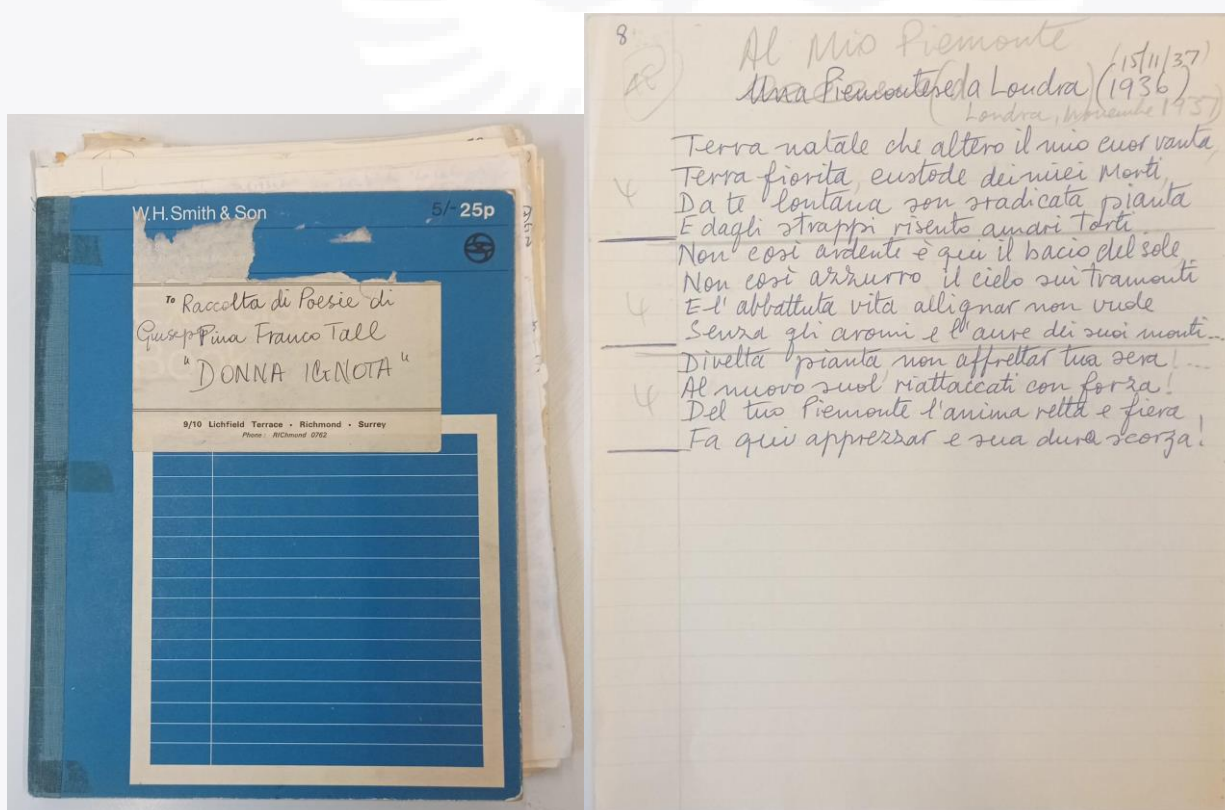 W.H. Smith & Son
5/- 25p
To Raccolta di Poesie di
Giuseppina Franco Tall
"DONNA IGNOTA"
9/10 Lichfield Terrace · Richmond · Surrey
Phone: RIChmond 0762
8
Al Mio Piemonte
48
(15/11/37)
Una Piemontese da Londra (1936)
Londra, novembre 1937
Terra natale che altero il mio cuor vanta,
Terra fiorita, custode dei miei Morti,
4
Da te lontana son sradicata pianta
E dagli strappi risento amari Torti.
Non così ardente è qui il bacio del sole,
Non così azzurro il cielo sui Tramonti
4
E l'abbattuta vita allignar non vuole
Senza gli aromi e l'aure dei suoi monti...
Divelta pianta, non affrettar tua sera!...
4
Al nuovo suol riattaccati con forza!
Del tuo Piemonte l'anima retta e fiera
Fa qui apprezzar e sua dura scorza!